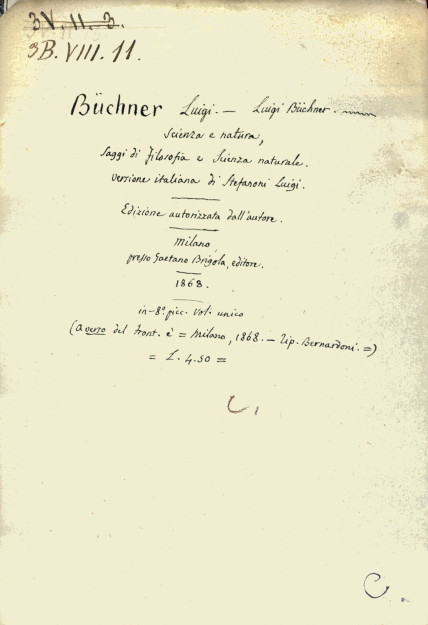 3V. II. 3.
3B. VIII. 11.
Büchner Luigi. — Luigi Büchner.
Scienza e natura,
Saggi di Filosofia e Scienza naturale.
Versione italiana di Stefanoni Luigi.
Edizione autorizzata dall'autore.
Milano,
presso Gaetano Brigola, editore.
1868.
in-8º picc. vol. unico
(a verzo del front. è = Milano, 1868. — Tip. Bernardoni. =)
= L. 4.50 =
C.
C.